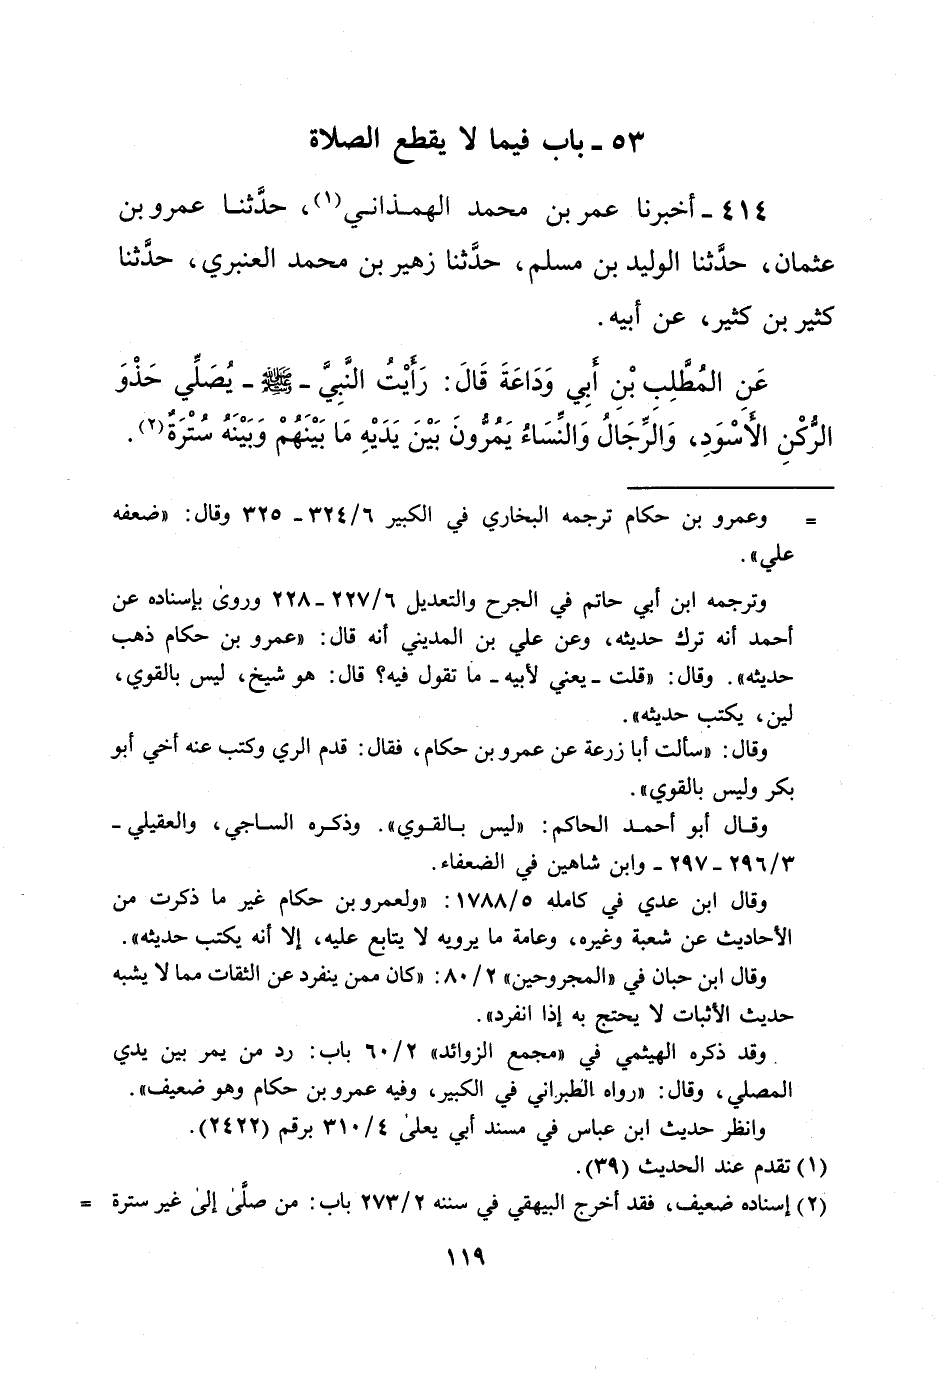 ٥٣ ـ باب فيما لا يقطع الصلاة
٤١٤ ـ أخبرنا عمر بن محمد الهمذاني(١)، حدَّثنا عمرو بن
عثمان، حدَّثنا الوليد بن مسلم، حدَّثنا زهير بن محمد العنبري، حدَّثنا
كثير بن كثير، عن أبيه.
عَنِ المُطَّلِبِ بْنِ أَبِي وَدَاعَةَ قَالَ: رَأَيْتُ النَّبِيَّ ـ ﷺ ـ يُصَلِّي حَذْوَ
الرُّكْنِ الأَسْوَدِ، وَالرِّجَالُ وَالنِّسَاءُ يَمُرُّونَ بَيْنَ يَدَيْهِ مَا بَيْنَهُمْ وَبَيْنَهُ سُتْرَةٌ(٢).
= وعمرو بن حكام ترجمه البخاري في الكبير ٣٢٤/٦ ـ ٣٢٥ وقال: «ضعفه
علي».
وترجمه ابن أبي حاتم في الجرح والتعديل ٢٢٧/٦ ـ ٢٢٨ وروىٰ بإسناده عن
أحمد أنه ترك حديثه، وعن علي بن المديني أنه قال: «عمرو بن حكام ذهب
حديثه». وقال: «قلت ـ يعني لأبيه ـ ما تقول فيه؟ قال: هو شيخ، ليس بالقوي،
لين، يكتب حديثه».
وقال: «سألت أبا زرعة عن عمرو بن حكام، فقال: قدم الري وكتب عنه أخي أبو
بكر وليس بالقوي».
وقال أبو أحمد الحاكم: «ليس بالقوي». وذكره الساجي، والعقيلي ـ
٢٩٦/٣ ـ ٢٩٧ ـ وابن شاهين في الضعفاء.
وقال ابن عدي في كامله ١٧٨٨/٥: «ولعمرو بن حكام غير ما ذكرت من
الأحاديث عن شعبة وغيره، وعامة ما يرويه لا يتابع عليه، إلا أنه يكتب حديثه».
وقال ابن حبان في «المجروحين» ٨٠/٢: «كان ممن ينفرد عن الثقات مما لا يشبه
حديث الأثبات لا يحتج به إذا انفرد».
وقد ذكره الهيثمي في «مجمع الزوائد» ٦٠/٢ باب: رد من يمر بين يدي
المصلي، وقال: «رواه الطبراني في الكبير، وفيه عمرو بن حكام وهو ضعيف».
وانظر حديث ابن عباس في مسند أبي يعلىٰ ٣١٠/٤ برقم (٢٤٢٢).
(١) تقدم عند الحديث (٣٩).
(٢) إسناده ضعيف، فقد أخرج البيهقي في سننه ٢٧٣/٢ باب: من صلَّىٰ إلىٰ غير سترة =
١١٩